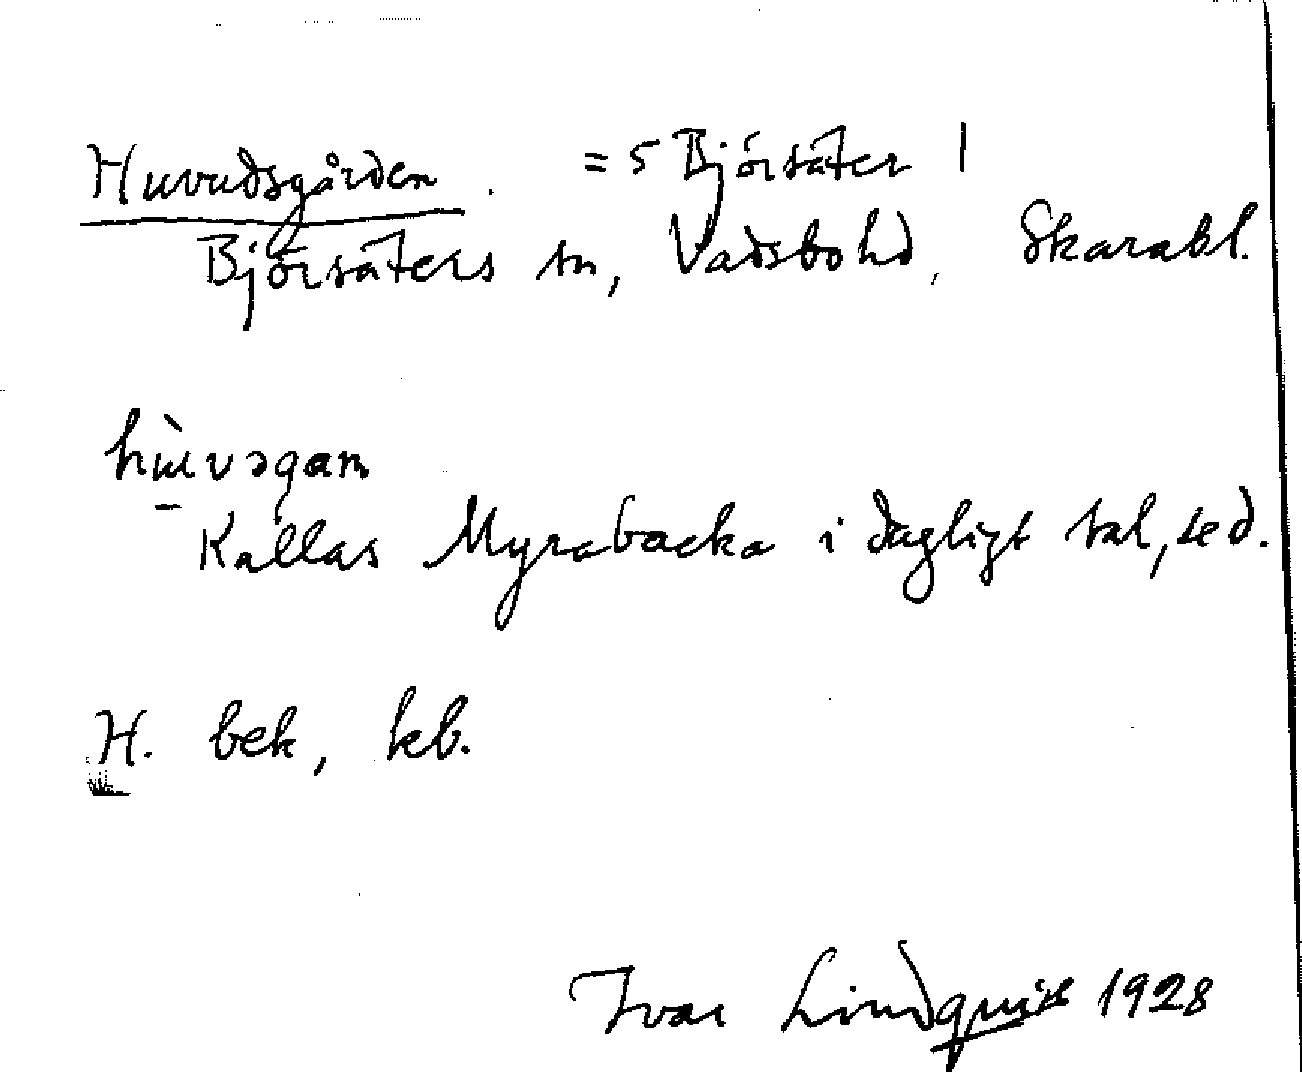 Huvudsgården. = 5 Björsäter |
Björsäters sn, Vadsbo hd, Skarabl.
hùvəgaṇ
Kallas Myrabacka i dagligt tal, se d.
H. bek, kb.
Ivar Lindquist 1928